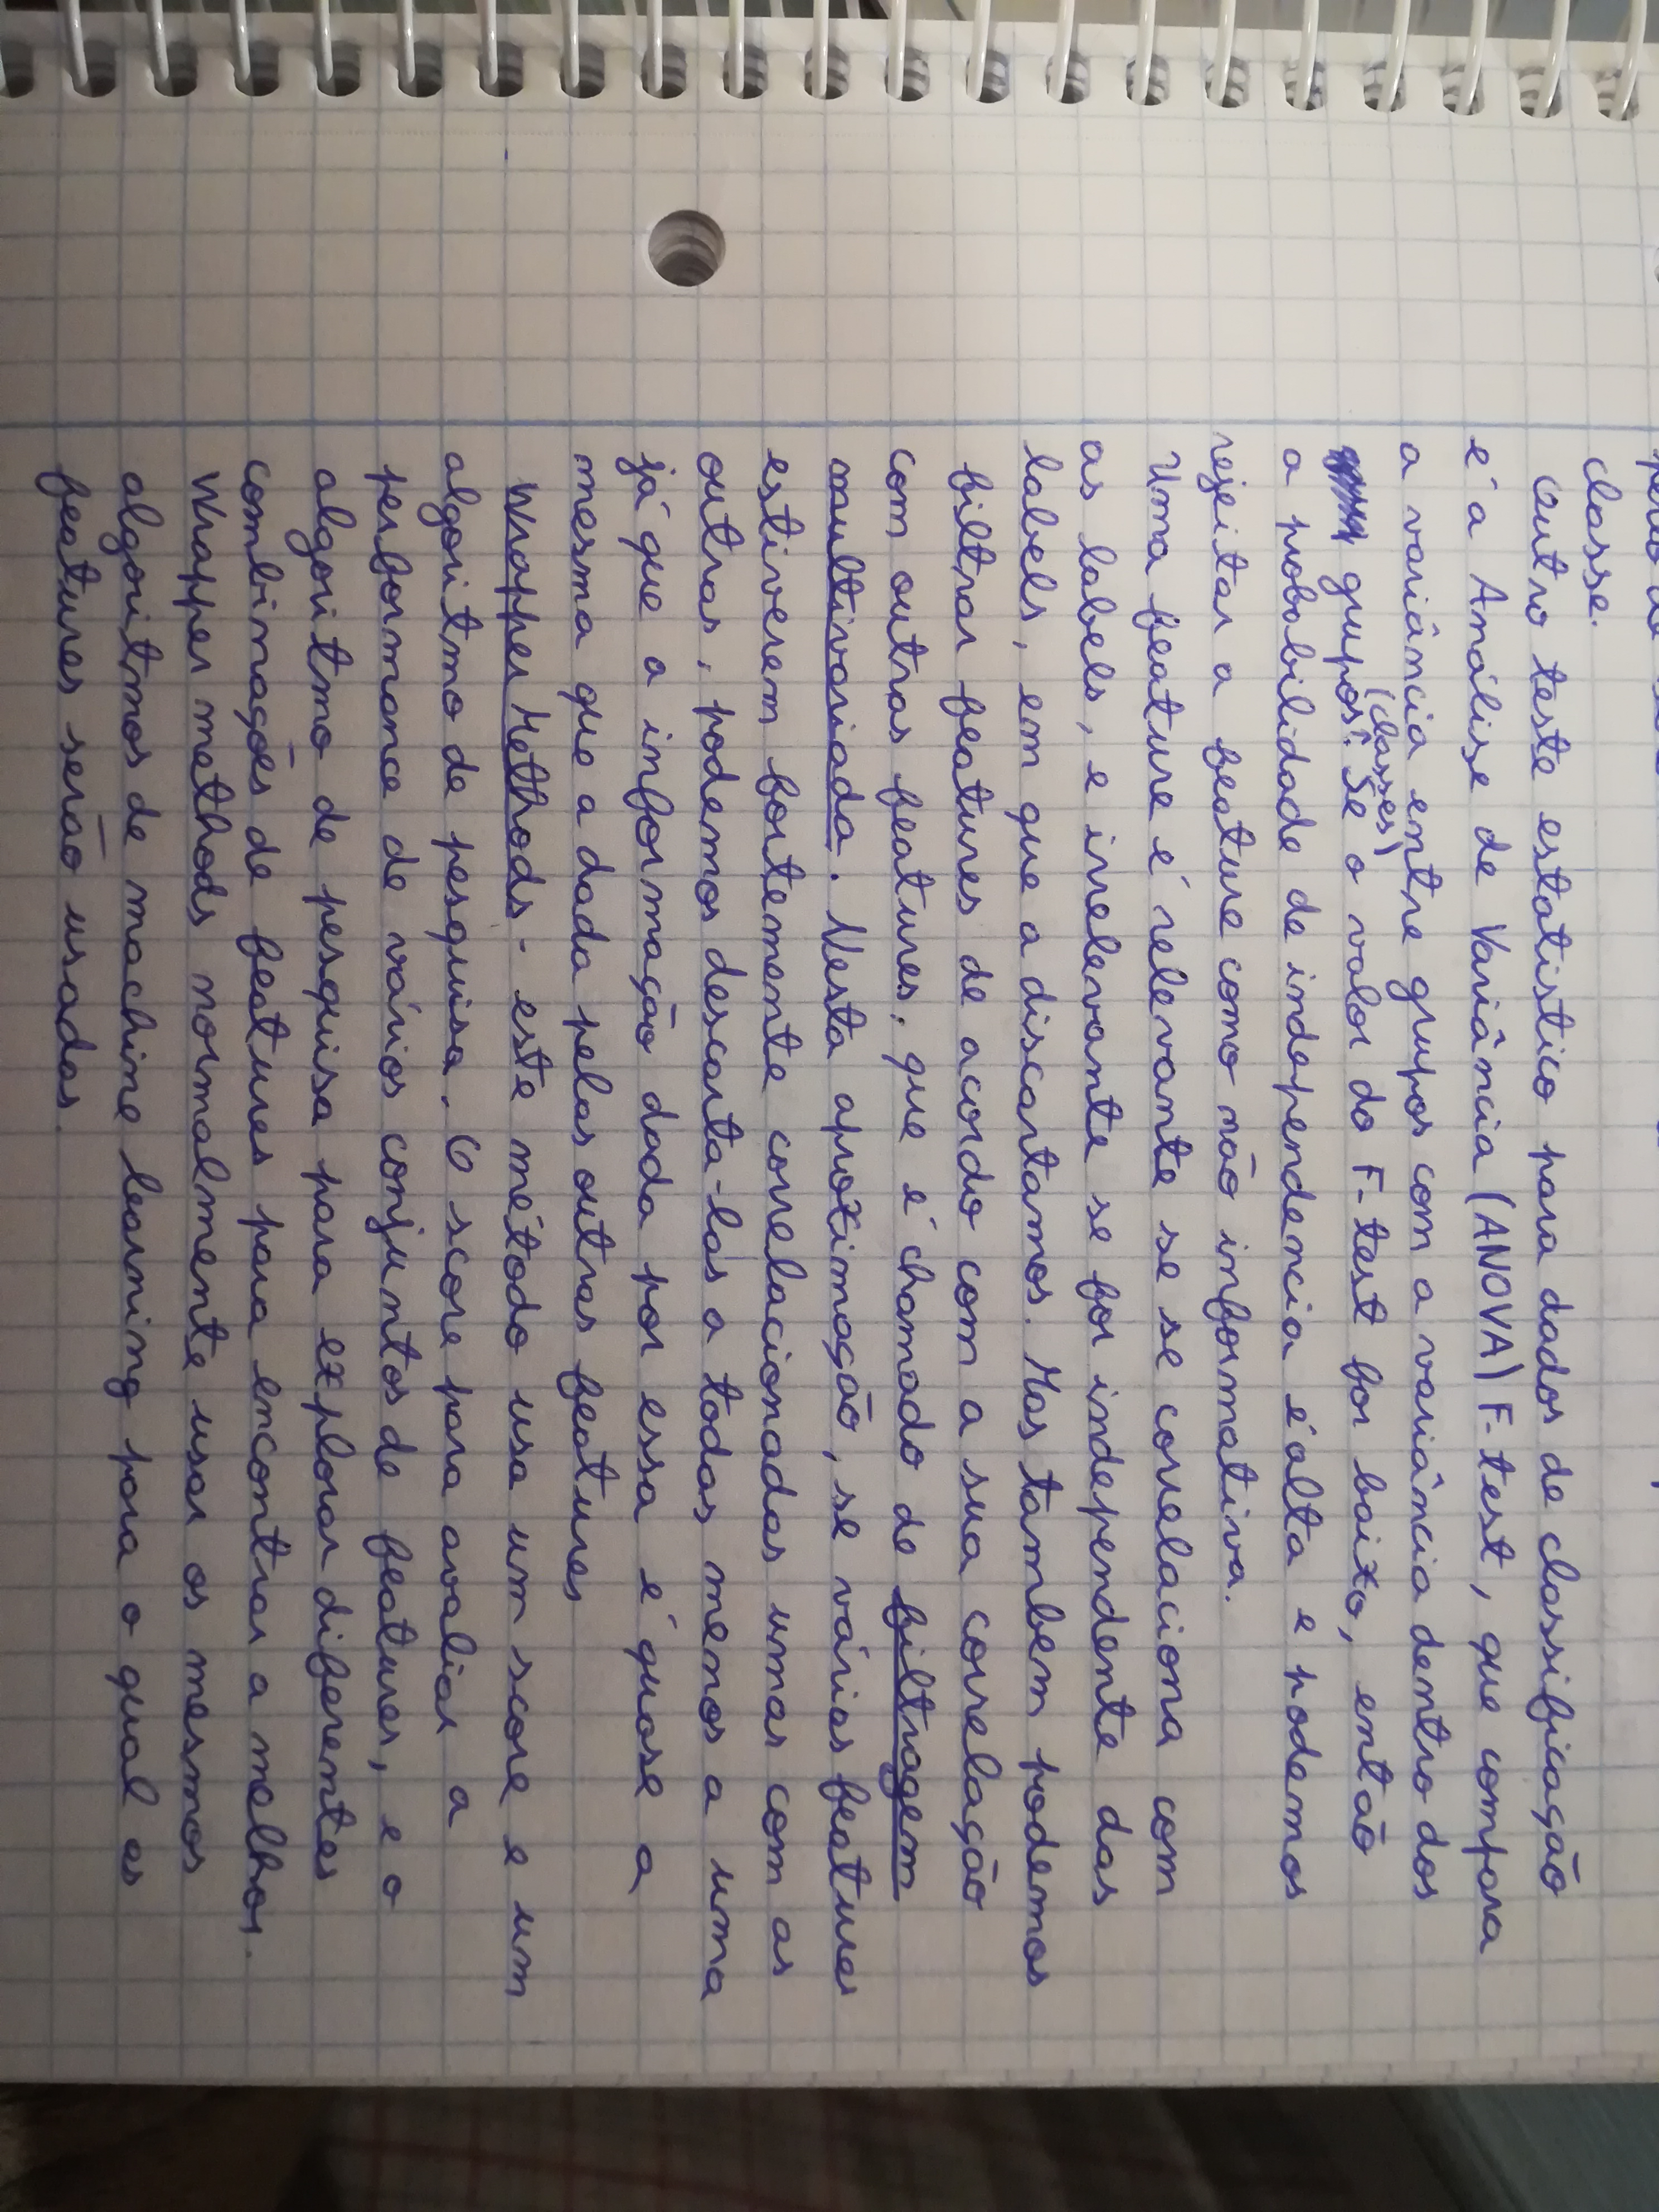 classe.
Outro teste estatístico para dados de classificação
é a Análise de Variância (ANOVA) F-test, que compara
a variância entre grupos com a variância dentro dos
grupos (classes). Se o valor do F-test for baixo, então
a probabilidade de independencia é alta e podemos
rejeitar a feature como não informativa.
Uma feature é relevante se se correlaciona com
as labels, e irrelevante se for independente das
labels, em que a discartamos. Mas tambem podemos
filtrar features de acordo com a sua correlação
com outras features, que é chamado de filtragem
multivariada. Nesta aproximação, se várias features
estiverem fortemente correlacionadas umas com as
outras, podemos descarta-las a todas menos a uma
já que a informação dada por essa é quase a
mesma que a dada pelas outras features
Wrapper Methods - este método usa um score e um
algoritmo de pesquisa. O score para avaliar a
performance de vários conjuntos de features, e o
algoritmo de pesquisa para explorar diferentes
combinações de features para encontrar a melhor.
Wrapper methods normalmente usar os mesmos
algoritmos de machine learning para o qual as
features serão usadas.